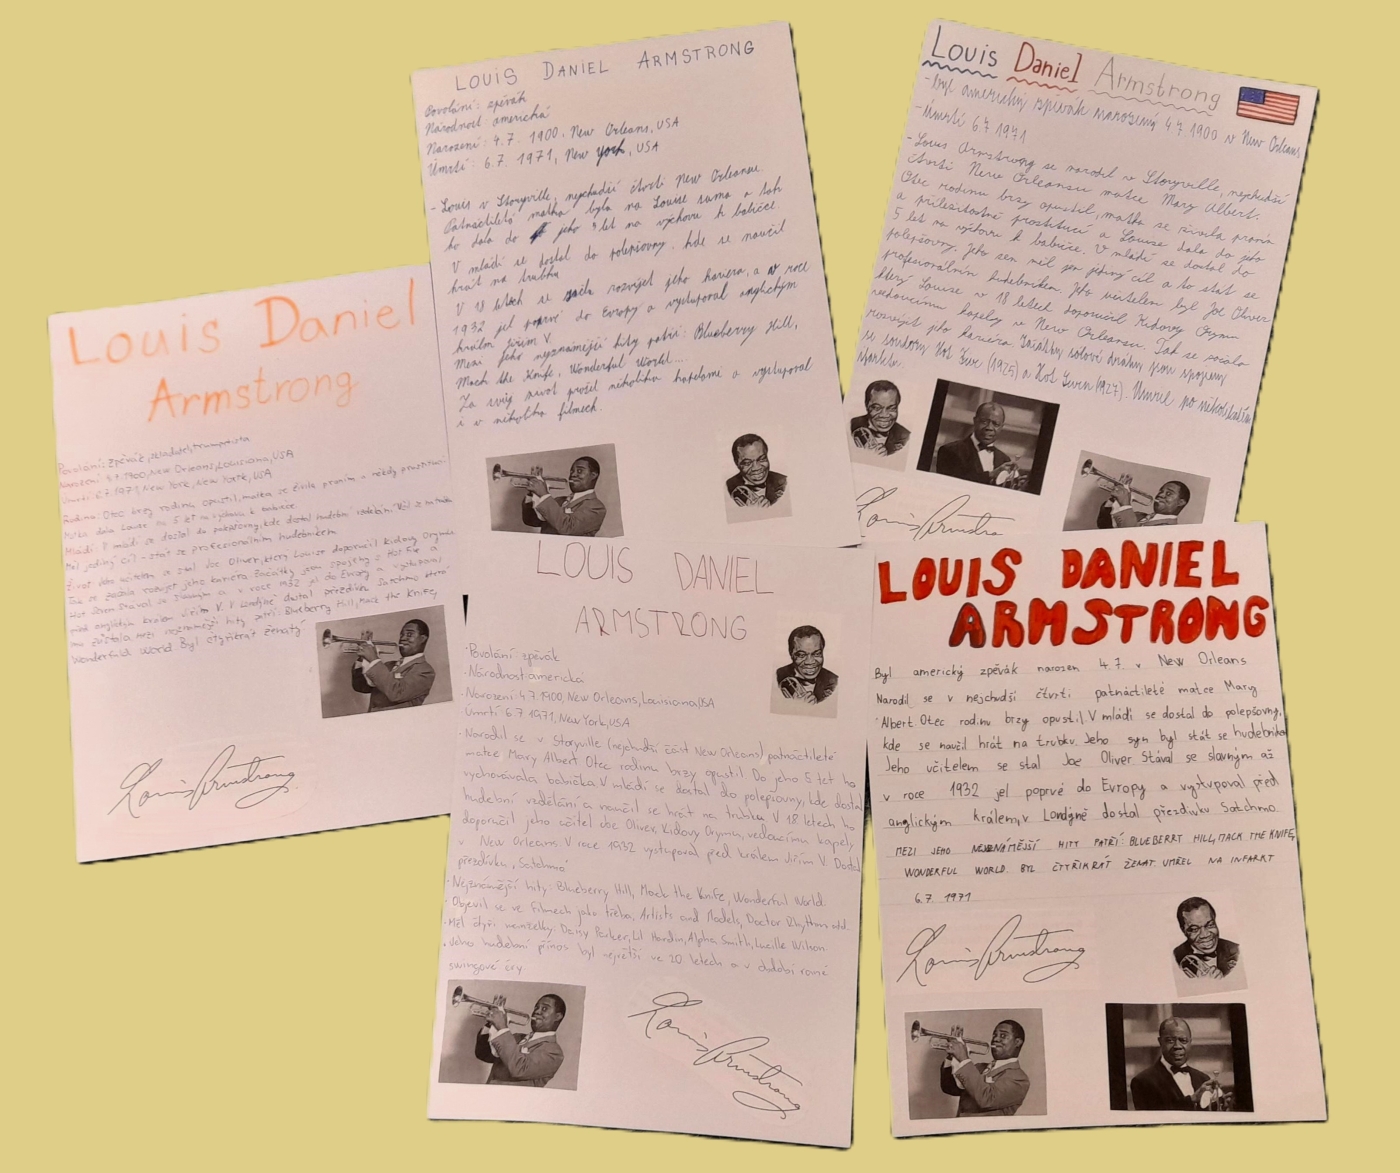 Louis Daniel
Armstrong
Povolání: Zpěvák, skladatel, trumpetista
Narození: 4.7.1900, New Orleans, Louisiana, USA
Úmrtí: 6.7.1971, New York, New York, USA
Rodina: Otec brzy rodinu opustil, matka se živila praním a někdy prostitucí
Matka dala Louise na 5 let na výchovu k babičce
Mládí: V mládí se dostal do polepšovny, kde dostal hudební vzdělání.
Měl jediný cíl - stát se profesionálním hudebníkem
Život: Jeho učitelem se stal Joe Oliver, který Louise doporučil Kidovy Orymu
Tak se začala rozvíjet jeho kariera Začátky jsou spojeny s Hot Five a
Hot Seven Stával se slavným a v roce 1932 jel do Evropy a vystupoval
před anglickým králem Jiřím V. V Londýně dostal přezdívku Satchmo která
mu zůstala Mezi nejznámější hity patří: Blueberry Hill, Mack the Knife,
Wonderfuld World Byl čtyřikrát ženatý
Louis Armstrong
LOUIS DANIEL ARMSTRONG
Povolání: zpěvák
Národnost: americká
Narození: 4.7. 1900, New Orleans, USA
Úmrtí: 6.7. 1971, New York, USA
- Louis v Storyville, nejchudší čtvrti New Orleansu.
Patnáctiletá matka byla na Louise sama a tak
ho dala do jeho 5 let na výchovu k babičce.
V mládí se dostal do polepšovny, kde se naučil
hrát na trubku
V 18 letech se začla rozvíjet jeho kariera, a v roce
1932 jel poprvé do Evropy a vystupoval anglickým
králem Jiřím V
Mezi jeho nejznámější hity patří: Blueberry Hill,
Mack the Knife, Wonderful World....
Za svůj život prošel několika kapelami a vystupoval
i v několika filmech.
Louis Daniel Armstrong
- Byl americký zpěvák narozený 4.7. 1900 v New Orleans
- Úmrtí 6.7 1971
- Louis Armstrong se narodil v Storyville, nejchudší
čtvrti New Orleansu matce Mary Albert.
Otec rodinu brzy opustil, matka se živila praním
a příležitostně prostitucí a Louise dala do jeho
5 let na výchovu k babičce. V mládí se dostal do
polepšovny. Jeho sen měl jen jediný cíl a to stát se
profesionálním hudebníkem. Jeho učitelem byl Joe Oliver
který Louise v 18 letech doporučil Kidovy Orymu
vedoucímu kapely v New Orleansu. Tak se počala
rozvíjet jeho kariera Začátky sólové dráhy jsou spojeny
se soubory Hot Five (1925) a Hot Seven (1927). Umřel po
infarktu.
Louis Armstrong
LOUIS DANIEL
ARMSTRONG
· Povolání zpěvák
· Národnost americká
· Narození 4.7.1900, New Orleans, Louisiana, USA
· Úmrtí 6.7 1971, New York, USA
· Narodil se v Storyville (nejchudší část New Orleans) patnáctileté
matce Mary Albert Otec rodinu brzy opustil Do jeho 5 let ho
vychovávala babička V mládí se dostal do polepšovny, kde dostal
hudební vzdělání a naučil se hrát na trubku V 18 letech ho
doporučil jeho učitel Joe Oliver, Kidovy Orymu, vedoucímu kapely
v New Orleans V roce 1932 vystupoval před králem Jiřím V. Dostal
přezdívku „Satchmo"
· Nejznámější hity: Blueberry Hill, Mack the Knife, Wonderful World
· Objevil se ve filmech jako třeba, Artists and Models, Doctor Rhythm atd.
· Měl čtyři manželky: Daisy Parker, Lil Hardin, Alpha Smith, Lucille Wilson
· Jeho hudební přínos byl největší ve 20 letech a v období rané
swingové éry
Louis Armstrong
LOUIS DANIEL
ARMSTRONG
Byl americký zpěvák narozen 4.7. v New Orleans
Narodil se v nejchudší čtvrti patnáctileté matce Mary
Albert Otec rodinu brzy opustil V mládí se dostal do polepšovny,
kde se naučil hrát na trubku Jeho syn byl stát se hudebníkem
Jeho učitelem se stal Joe Oliver Stával se slavným až
v roce 1932 jel poprvé do Evropy a vystupoval před
anglickým králem, v Londýně dostal přezdívku Satchmo.
MEZI JEHO NEJZNÁMĚJŠÍ HITY PATŘÍ: BLUEBERRY HILL, MACK THE KNIFE,
WONDERFUL WORLD. BYL ČTYŘIKRÁT ŽENAT. UMŘEL NA INFARKT
6.7. 1971
Louis Armstrong